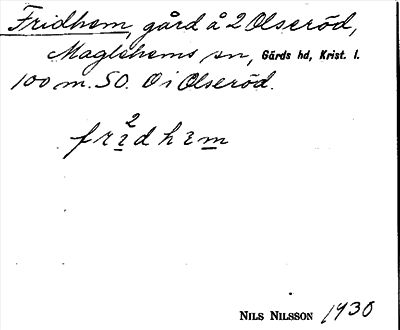 Fridhem, gård å 2 Olseröd,
Maglehems sn, Gärds hd, Krist. l.
100 m. SO. O i Olseröd.
2
NILS NILSSON 1930